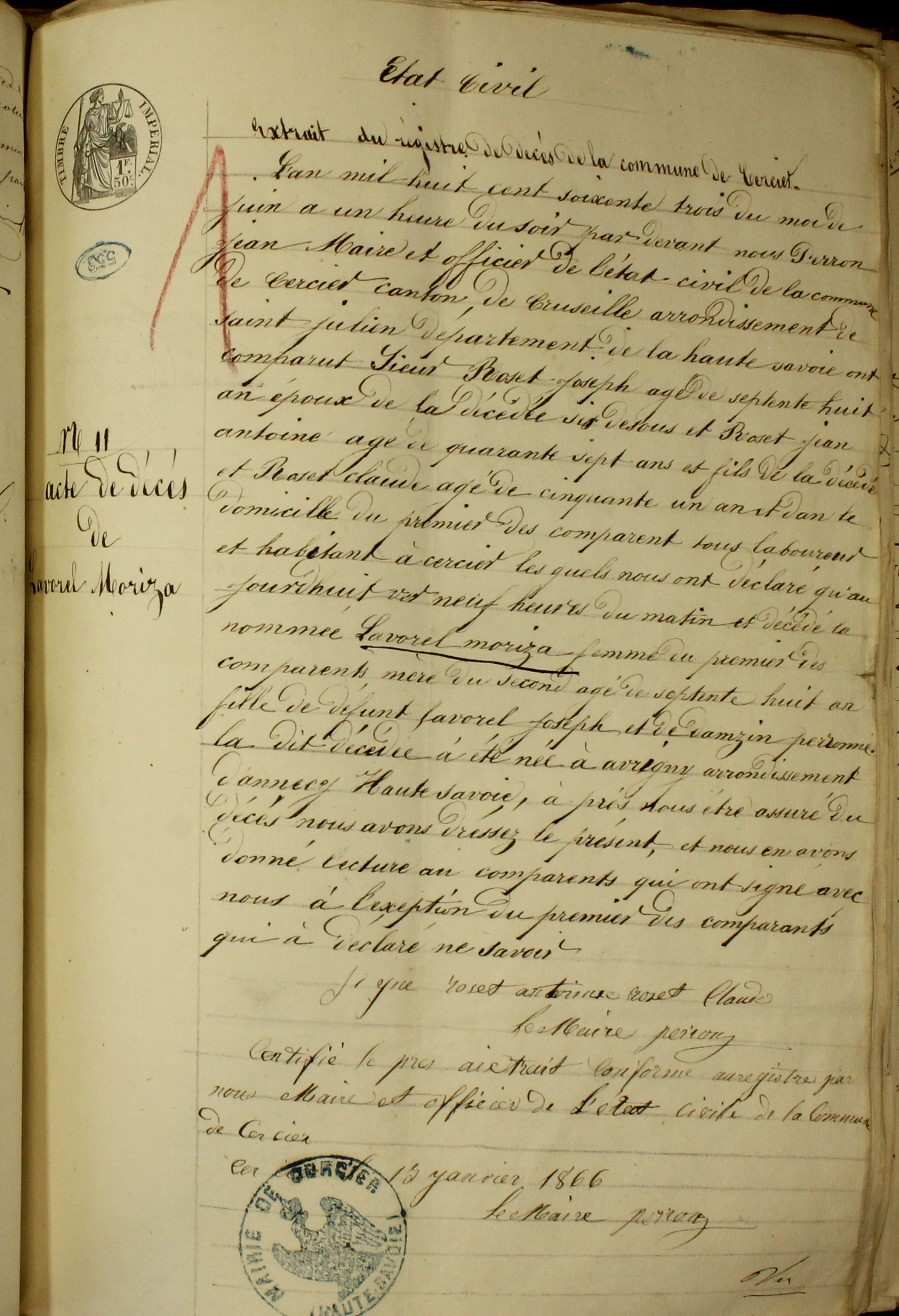 Etat Civil
TIMBRE IMPERIAL.
1F.
50c.
extrait du régistre de décés de la commune de Cercier
L'an mil huit cent soixente trois du moi de
juin a un heure du soir par devant nous Perron
jean Maire et officier de l'état civil de la commune
de Cercier canton, de Cruseille arrondissement de
saint julien département de la haute savoie ont
comparut Sieur Roset joseph agé de septente huit
an époux de la décédée si desous et Roset jean
antoine agé de quarante sept ans et fils de la décédé
et Roset claude agé de cinquante un an et dan le
domicille du premier des comparent tous laboureur
et habitant à cercier les quels nous ont déclaré qu'au
jourdhuit neuf heures du matin et décédé la
nommée Lavorel moriza femme du premier des
comparents, mère du second agé de septente huit an
fille de défunt favorel joseph et de damzin perronne
la dit décédée à été née à avrigny arrondissement
d'annecy Haute savoie, à prés nous être assuré du
décés nous avons dressez le présent, et nous en avons
donné lecture au comparents qui ont signé avec
nous à l'exeptión du premier des comparants
qui à déclaré ne savoir
N 11
acte de décés
de
Lavorel Moriza
roset antoine roset Claude
le Maire perron
Certifié le pres aietrait Conforme auregistre par
nous Maire et officier de L'etat civile de la Commune
de Cercier
Cer le 13 janvier 1866
le Maire perron
MAIRIE DE CERCIER
(HAUTE-SAVOIE)
Vu